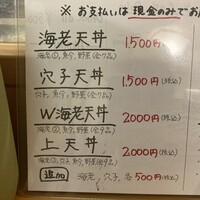 ※ お支払いは 現金のみでお
海老天丼 1,500円
海老②, 魚介, 野菜(全7品)
穴子天丼 1,500円(税込)
穴子, 魚介, 野菜(全7品)
W海老天丼 2000円(税込)
海老④, 魚介, 野菜(全9品)
上天丼 2000円(税込)
海老②, 穴子, 魚介, 野菜(全9品)
追加 海老, 穴子, 各500円(税込)